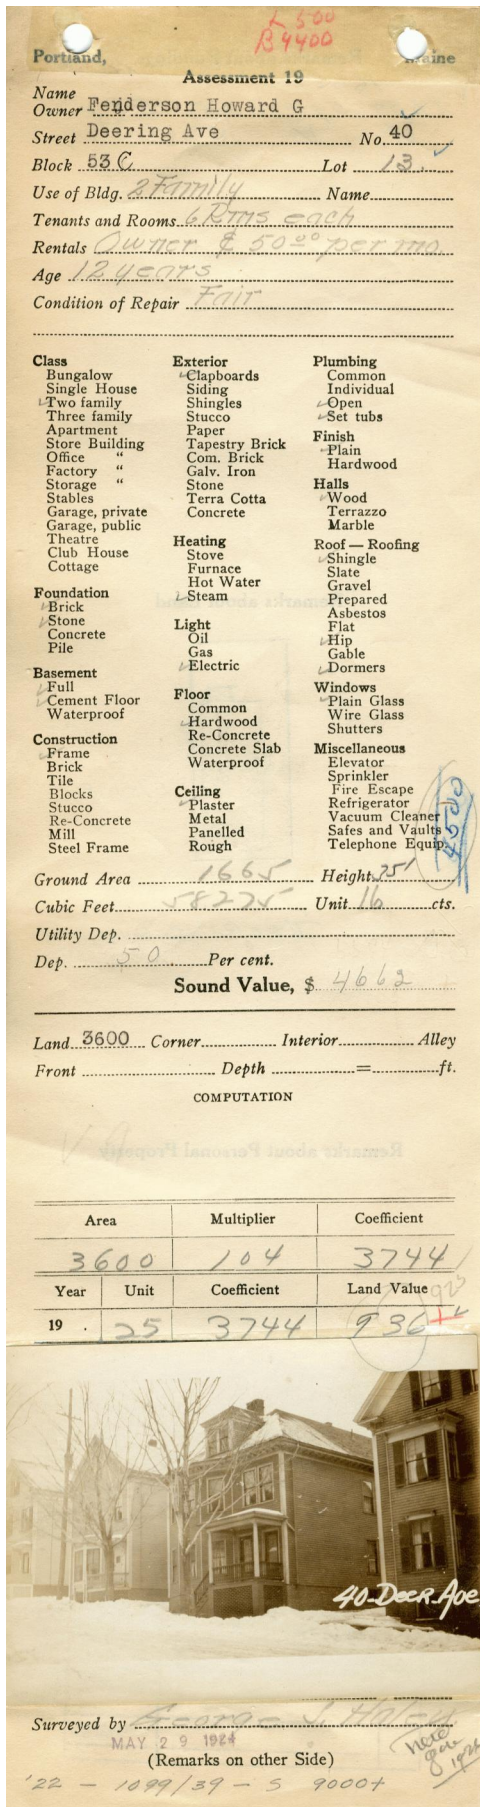 + 500
B 4400
Portland, Maine
Assessment 19
Name
Owner Fenderson Howard G
Street Deering Ave No. 40
Block 53 C Lot 13.
Use of Bldg. 2 Family Name
Tenants and Rooms 6 Rms each
Rentals Owner & 50.00 per mo.
Age 12 years
Condition of Repair Fair
Class
Bungalow
Single House
Two family
Three family
Apartment
Store Building
Office "
Factory "
Storage "
Stables
Garage, private
Garage, public
Theatre
Club House
Cottage
Foundation
Brick
Stone
Concrete
Pile
Basement
Full
Cement Floor
Waterproof
Construction
Frame
Brick
Tile
Blocks
Stucco
Re-Concrete
Mill
Steel Frame
Exterior
Clapboards
Siding
Shingles
Stucco
Paper
Tapestry Brick
Com. Brick
Galv. Iron
Stone
Terra Cotta
Concrete
Heating
Stove
Furnace
Hot Water
Steam
Light
Oil
Gas
Electric
Floor
Common
Hardwood
Re-Concrete
Concrete Slab
Waterproof
Ceiling
Plaster
Metal
Panelled
Rough
Plumbing
Common
Individual
Open
Set tubs
Finish
Plain
Hardwood
Halls
Wood
Terrazzo
Marble
Roof — Roofing
Shingle
Slate
Gravel
Prepared
Asbestos
Flat
Hip
Gable
Dormers
Windows
Plain Glass
Wire Glass
Shutters
Miscellaneous
Elevator
Sprinkler
Fire Escape
Refrigerator
Vacuum Cleaner
Safes and Vaults
Telephone Equip.
4500
Ground Area 1665 Height 35'
Cubic Feet 58275 Unit 16 cts.
Utility Dep.
Dep. 50 Per cent.
Sound Value, $ 4662
Land 3600 Corner Interior Alley
Front Depth = ft.
COMPUTATION
Area Multiplier Coefficient
3600 104 3744
Year Unit Coefficient Land Value
19 . 25 3744 936
925
40-Deer-Ave
Surveyed by George J. Haley
MAY 29 1924
(Remarks on other Side)
'22 - 1099/39 - S 9000+